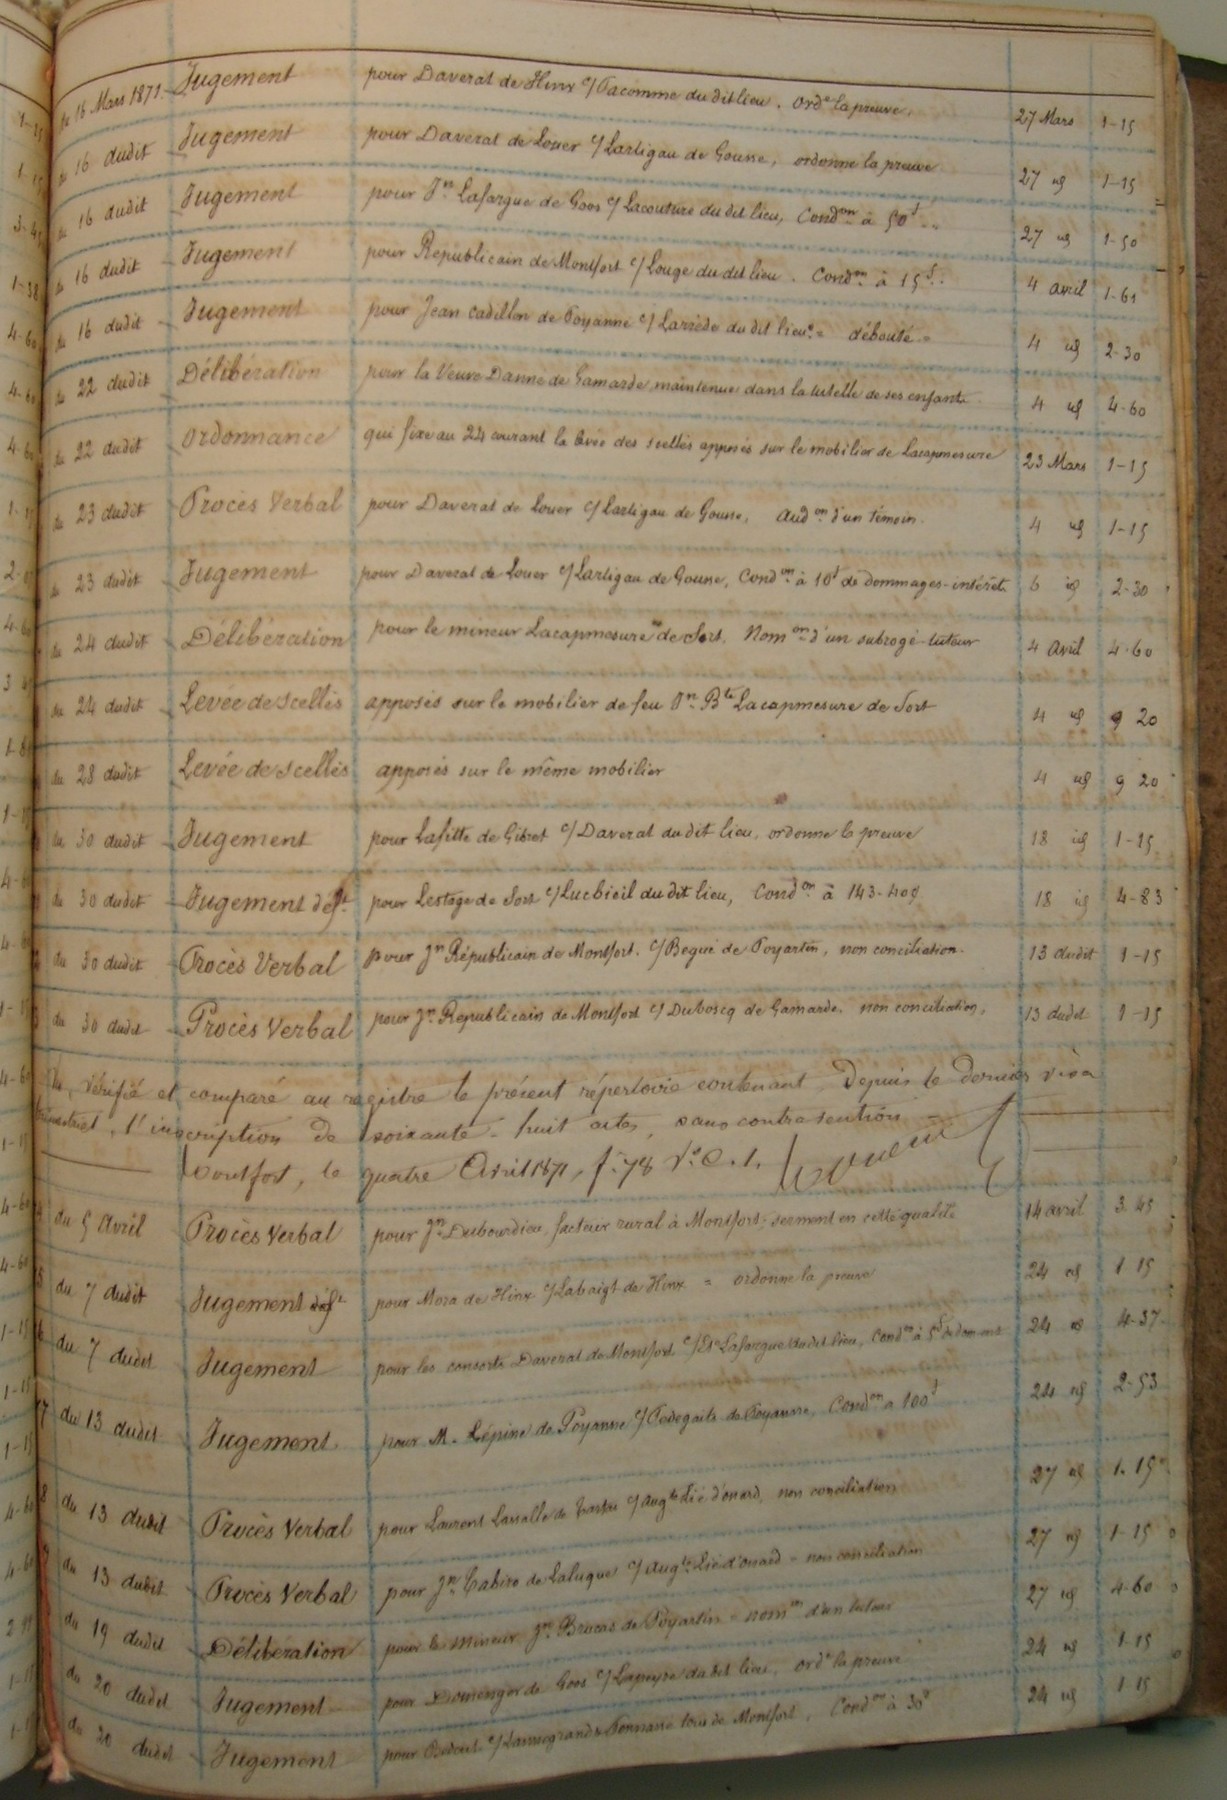 du 16 Mars 1871 Jugement pour Daverat de Hinx c/ Pacomme du dit lieu. Ordᵉ la preuve. 27 Mars 1-15
du 16 dudit Jugement pour Daverat de Louer c/ Lartigau de Gousse, ordonne la preuve 27 id 1-15
du 16 dudit Jugement pour Jⁿ Lafargue de Goos c/ Lacouture du dit lieu, Condᵒⁿ à 50ᶠ 27 id 1-50
du 16 dudit Jugement pour Républicain de Montfort c/ Louge du dit lieu. Condᵒⁿ à 15ᶠ 4 avril 1-61
du 16 dudit Jugement pour Jean Cadillon de Poyanne c/ Larrède du dit lieu = débouté = 4 id 2-30
du 22 dudit Délibération pour la Veuve Danne de Gamarde, maintenue dans la tutelle de ses enfants 4 id 4-60
du 22 dudit Ordonnance qui fixe au 24 courant la levée des scellés apposés sur le mobilier de Lacapmesure 23 Mars 1-15
du 23 dudit Procès Verbal pour Daverat de Louer c/ Lartigau de Gousse, Audᵒⁿ d'un témoin. 4 id 1-15
du 23 dudit Jugement pour Daverat de Louer c/ Lartigau de Gousse, Condᵒⁿ à 10ᶠ de dommages-intérêts 6 id 2-30
du 24 dudit Délibération pour le mineur Lacapmesure de Sort. Nomᵒⁿ d'un subrogé-tuteur 4 avril 4-60
du 24 dudit Levée de scellés apposés sur le mobilier de feu Jⁿ Bᵗᵉ Lacapmesure de Sort 4 id 9 20
du 28 dudit Levée de scellés apposés sur le même mobilier 4 id 9 20
du 30 dudit Jugement pour Lafitte de Gibret c/ Daverat du dit lieu, ordonne la preuve 18 id 1-15
du 30 dudit Jugement défᵗ pour Lestage de Sort c/ Lucbieil du dit lieu, Condᵒⁿ à 143-40 18 id 4-83
du 30 dudit Procès Verbal pour Jⁿ Républicain de Montfort. c/ Begué de Poyartin, non conciliation. 13 dudit 1-15
du 30 dudit Procès Verbal pour Jⁿ Républicain de Montfort c/ Duboscq de Gamarde, non conciliation, 13 dudit 1-15
Vu, vérifié et comparé au registre le présent répertoire contenant depuis le dernier visa
trimestriel, l'inscription de soixante-huit actes, sans contravention
Montfort, le quatre Avril 1871, fᵒ 78 Vᵒ C. 1.
du 5 Avril Procès Verbal pour Jⁿ Dubourdieu, facteur rural à Montfort, serment en cette qualité 14 avril 3.45
du 7 dudit Jugement défᵗ pour Mora de Hinx c/ Labaigt de Hinx = ordonne la preuve 24 id 1 15
du 7 dudit Jugement pour les consorts Daverat de Montfort c/ Etᵉ Lafargue du dit lieu, Condᵒⁿ à 5ᶠ de dom-int 24 id 4-37
du 13 dudit Jugement pour M. Lépine de Poyanne c/ de Poyanne, Condᵒⁿ à 100ᶠ 24 id 2-53
du 13 dudit Procès Verbal pour Laurent Lassalle de c/ Augᵗᵉ Lié d'onard, non conciliation 27 id 1.15
du 13 dudit Procès Verbal pour Jⁿ Cabiro de Laluque c/ Augᵗᵉ Lié d'onard = non conciliation 27 id 1-15
du 19 dudit Délibération pour le mineur Jⁿ Brocas de Poyartin = nomᵒⁿ d'un tuteur 27 id 4-60
du 20 dudit Jugement pour Domenger de Goos c/ Lapeyre du dit lieu, ordᵉ la preuve 24 id 1-15
du 20 dudit Jugement pour c/ de Montfort, Condᵒⁿ à 30ᶠ 24 id 1 15